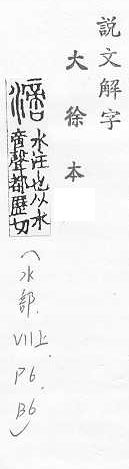 說文解字
大徐本
滴
水注也从水
啇聲都歷切
(水部.VII上.P6.B6)